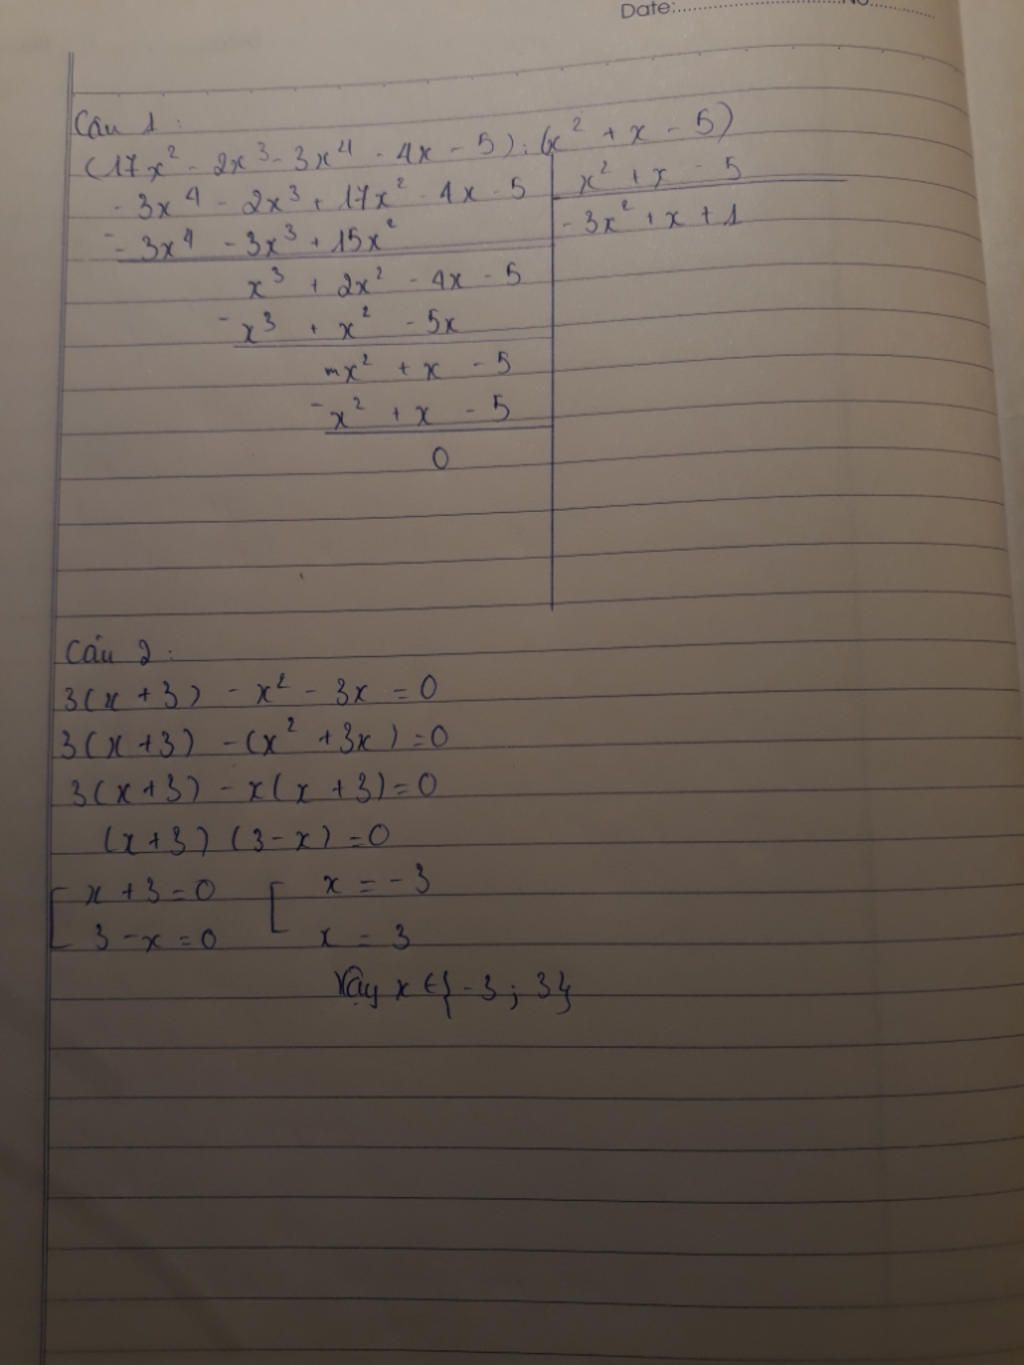 Date: No
Câu 1 :
(17x² - 2x³ - 3x⁴ - 4x - 5) : (x² + x - 5)
- 3x⁴ - 2x³ + 17x² - 4x - 5 x² + x - 5
- - 3x⁴ - 3x³ + 15x² - 3x² + x + 1
x³ + 2x² - 4x - 5
- x³ + x² - 5x
x² + x - 5
- x² + x - 5
0
Câu 2 :
3(x + 3) - x² - 3x = 0
3(x + 3) - (x² + 3x) = 0
3(x + 3) - x(x + 3) = 0
(x + 3) (3 - x) = 0
[ x + 3 = 0 [ x = - 3
3 - x = 0 x = 3
Vậy x ∈ { - 3 ; 3}